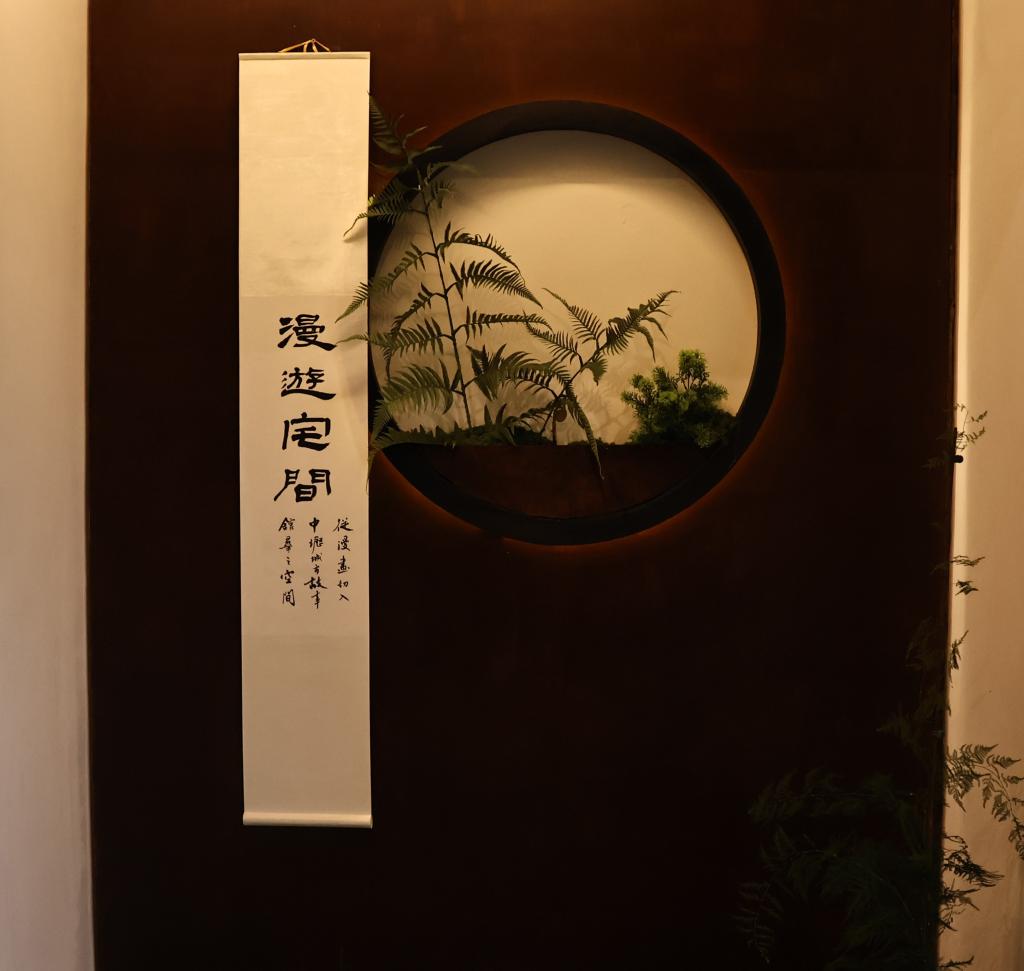 漫遊宅間
從漫畫切入
中壢城市故事
館羣之空間